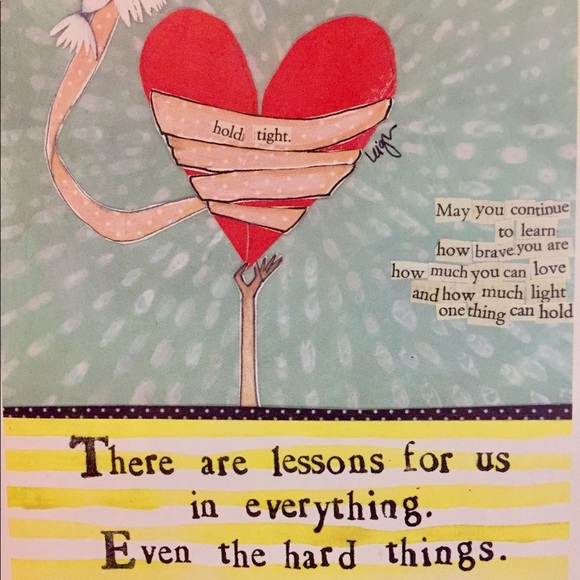 hold tight.
Leigh
May you continue
to learn
how brave you are
how much you can love
and how much light
one thing can hold
There are lessons for us
in everything.
Even the hard things.